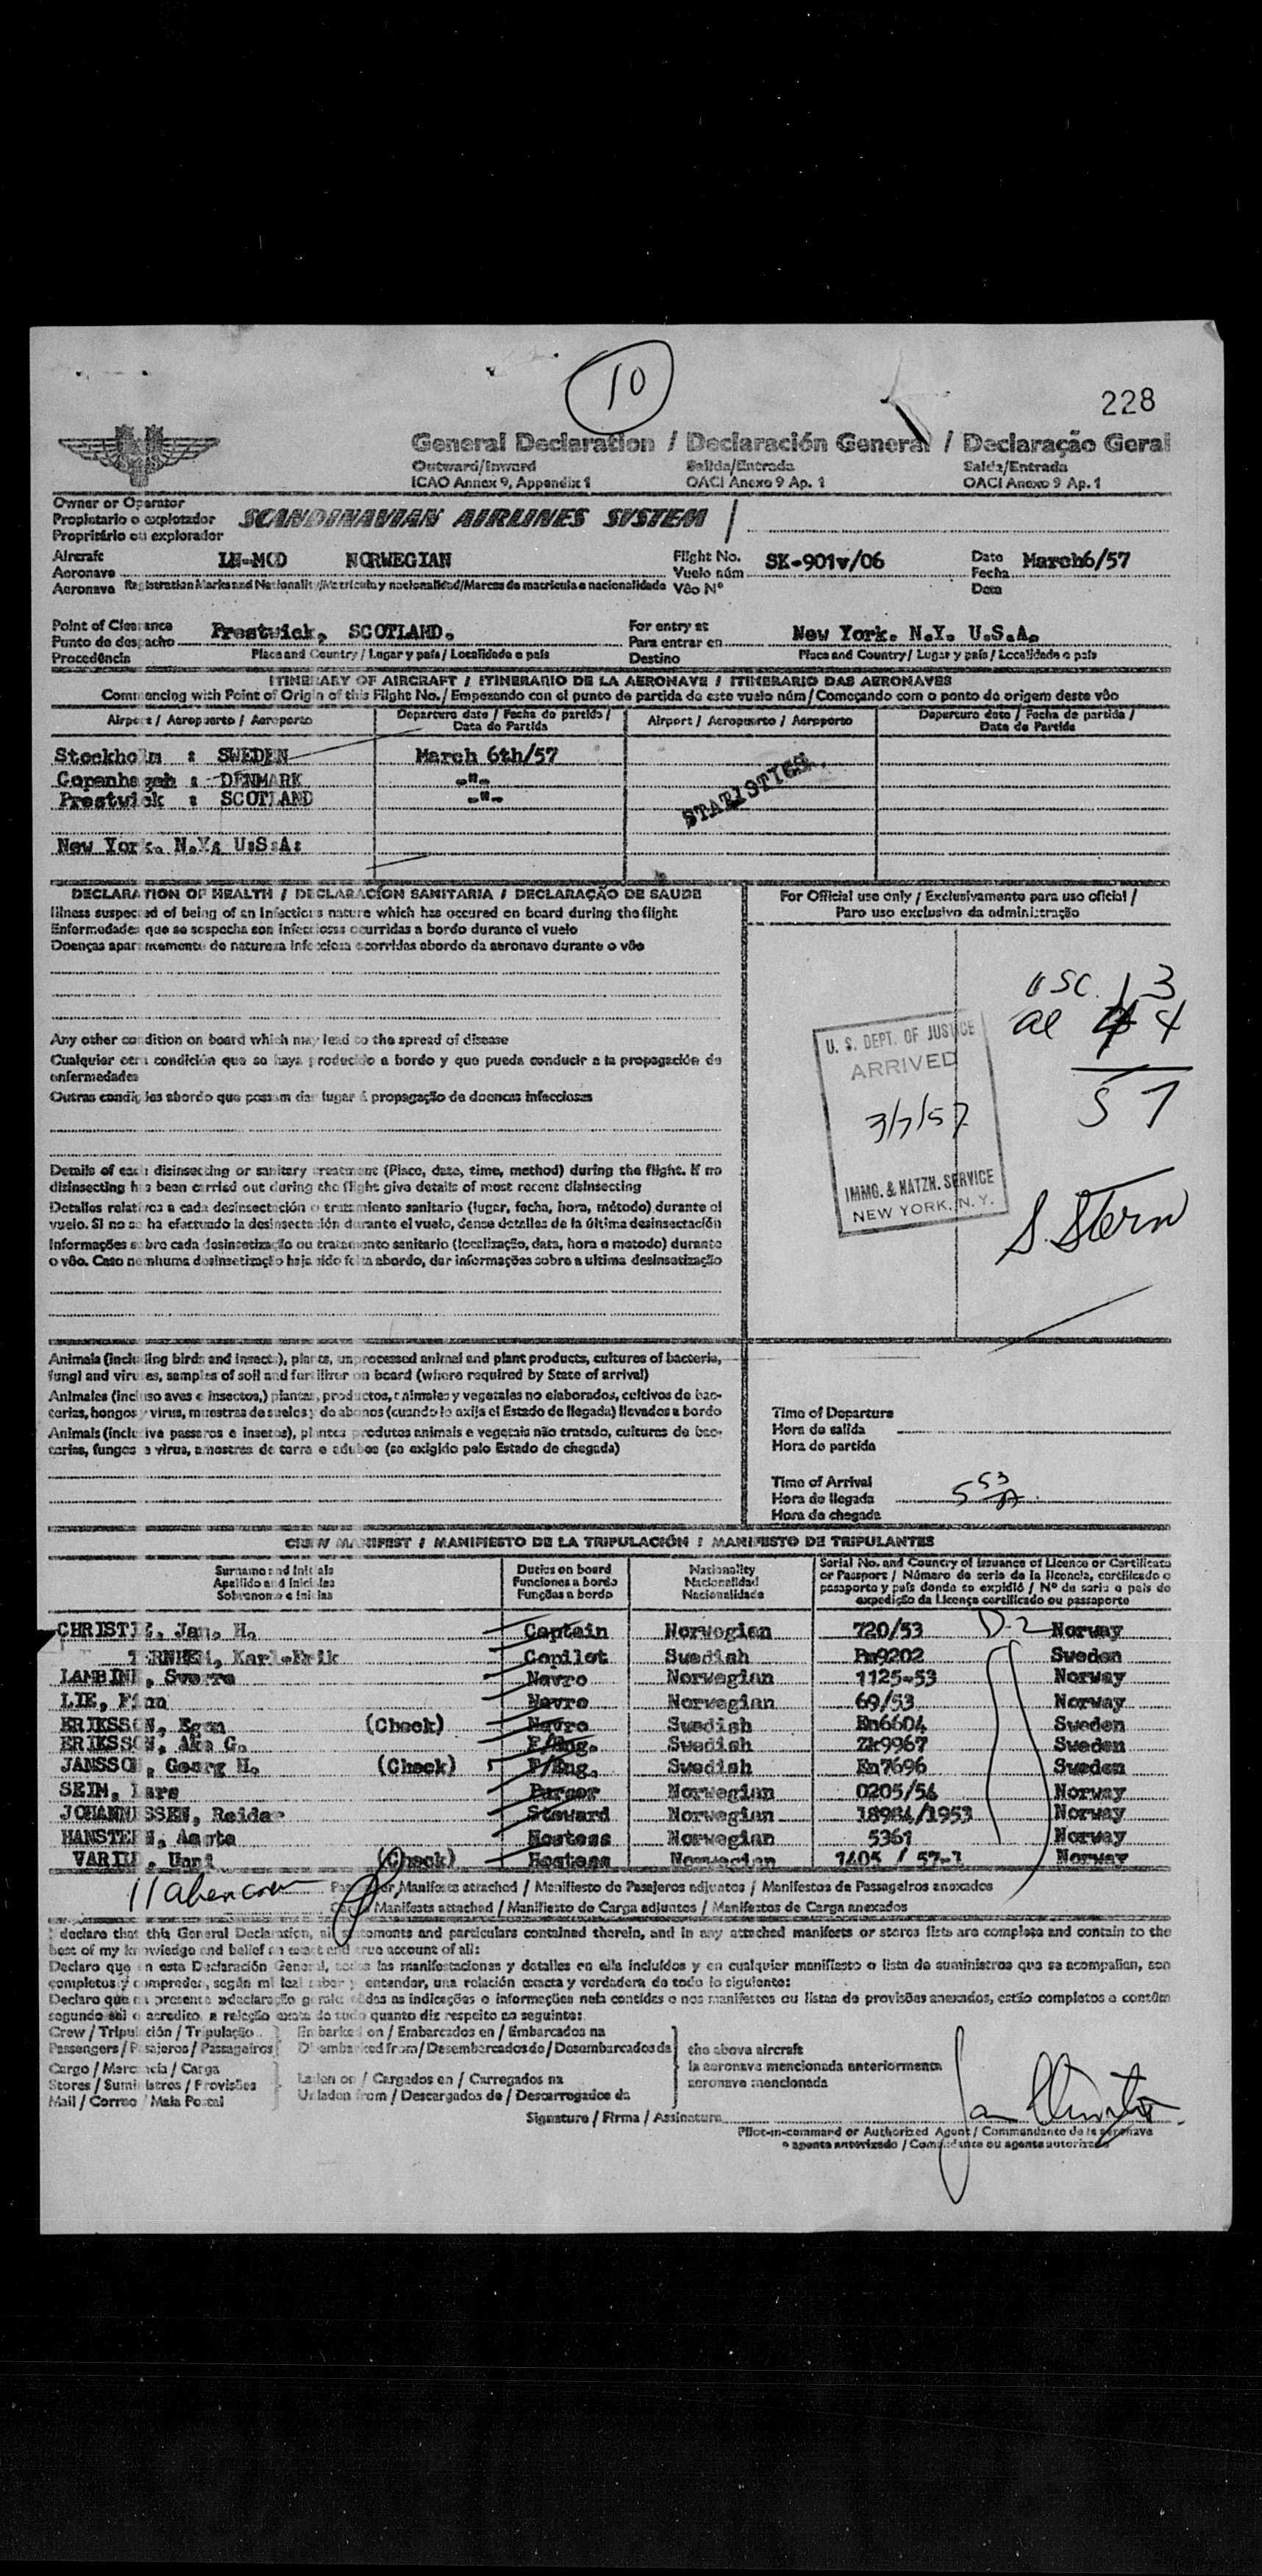 10
228
General Declaration / Declaración General / Declaração Geral
Outward/Inward Salida/Entrada Saída/Entrada
ICAO Annex 9, Appendix 1 OACI Anexo 9 Ap. 1 OACI Anexo 9 Ap. 1
Owner or Operator
Propietario o explotador SCANDINAVIAN AIRLINES SYSTEM
Propritário ou explorador
Aircraft LN-MOD NORWEGIAN Flight No. SK-901v/06 Date March6/57
Aeronave Vuelo núm Fecha
Aeronave Registration Marks and Nationality/Matrícula y nacionalidad/Marcas de matricula e nacionalidade Vôo Nº Data
Point of Clearance Prestwick, SCOTLAND. For entry at New York. N.Y. U.S.A.
Punto de despacho Para entrar en
Procedência Place and Country / Lugar y país / Localidade e país Destino Place and Country / Lugar y país / Localidade e país
ITINERARY OF AIRCRAFT / ITINERARIO DE LA AERONAVE / ITINERARIO DAS AERONAVES
Commencing with Point of Origin of this Flight No. / Empezando con el punto de partida de este vuelo núm / Começando com o ponto de origem deste vôo
Airport / Aeropuerto / Aeroporto Departure date / Fecha de partida / Data de Partida Airport / Aeropuerto / Aeroporto Departure date / Fecha de partida / Data de Partida
Stockholm : SWEDEN March 6th/57
Copenhagen : DENMARK -"-
Prestwick : SCOTLAND -"-
STATISTICS.
New York. N.Y: U:S:A:
DECLARATION OF HEALTH / DECLARACIÓN SANITARIA / DECLARAÇÃO DE SAUDE
For Official use only / Exclusivamento para uso oficial /
Para uso exclusivo da administração
Illness suspected of being of an infectious nature which has occured on board during the flight
Enfermedades que se sospecha son infecciosas ocurridas a bordo durante el vuelo
Doenças aparentemente de natureza infecciosa ocorridas abordo da aeronave durante o vôo
Any other condition on board which may lead to the spread of disease
Cualquier otra condición que se haya producido a bordo y que pueda conducir a la propagación de
enfermedades
Outras condições abordo que possam dar lugar á propagação de doencas infecciosas
USC. 13
al 44
57
U. S. DEPT. OF JUSTICE
ARRIVED
3/7/57
IMMG. & NATZN. SERVICE
NEW YORK, N. Y.
S. Stern
Details of each disinsecting or sanitary treatment (Place, date, time, method) during the flight. If no
disinsecting has been carried out during the flight give details of most recent disinsecting
Detalles relativos a cada desinsectación o tratamiento sanitario (lugar, fecha, hora, método) durante el
vuelo. Si no se ha efectuado la desinsectación durante el vuelo, dense detalles de la última desinsectación
Informações sobre cada desinsetização ou tratamento sanitario (localização, data, hora e metodo) durante
o vôo. Caso nenhuma desinsetização haja sido feita abordo, dar informações sobre a ultima desinsetização
Animals (including birds and insects), plants, unprocessed animal and plant products, cultures of bacteria,
fungi and viruses, samples of soil and fertilizer on board (where required by State of arrival)
Animales (incluso aves e insectos,) plantas, productos, animales y vegetales no elaborados, cultivos de bac-
terias, hongos y virus, muestras de suelos y de abonos (cuando lo exija el Estado de llegada) llevados a bordo
Animais (inclusive passaros e insetos), plantes produtos animais e vegetais não tratado, culturas de bac-
terias, fungos e virus, amostras de terra e adubos (se exigido pelo Estado de chegada)
Time of Departure
Hora de salida
Hora de partida
Time of Arrival
Hora de llegada 5 53 A
Hora de chegada
CREW MANIFEST / MANIFIESTO DE LA TRIPULACIÓN / MANIFESTO DE TRIPULANTES
Surname and Initials Duties on board Nationality Serial No. and Country of Issuance of Licence or Certificate
Apellido and iniciales Funciones a bordo Nacionalidad or Passport / Número de serie de la licencia, certificado o
Sobrenome e iniciais Funções a bordo Nacionalidade pasaporte y país donde se expidió / Nº de serie e pais de
expedição da Licença certificado ou passaporte
CHRISTIE, Jan. H. Captain Norwegian 720/53 D-2 Norway
TERNHEM, Karl-Erik Copilot Swedish 9202 Sweden
LAMBINE, Sverre Navro Norwegian 1125-53 Norway
LIE, Finn Navro Norwegian 69/53 Norway
ERIKSSON, Egon (Check) Navro Swedish En6604 Sweden
ERIKSSON, Ake G. F/Eng. Swedish Zk9967 Sweden
JANSSON, Georg H. (Check) F/Eng. Swedish En7696 Sweden
SEIM, Lars Purser Norwegian 0205/54 Norway
JOHANNESSEN, Reidar Steward Norwegian 18984/1953 Norway
HANSTEEN, Agnete Hostess Norwegian 5361 Norway
VARILD, Unni (Check) Hostess Norwegian 1405 / 57-1 Norway
11 alien crew
Passenger Manifests attached / Manifiesto de Pasajeros adjuntos / Manifestos de Passageiros anexados
Cargo Manifests attached / Manifiesto de Carga adjuntos / Manifestos de Carga anexados
I declare that this General Declaration, all statements and particulars contained therein, and in any attached manifests or stores lists are complete and contain to the
best of my knowledge and belief an exact and true account of all:
Declaro que en esta Declaración General, todas las manifestaciones y detalles en ella incluidos y en cualquier manifiesto o lista de suministros que se acompañan, son
completos y comprenden, según mi leal saber y entender, una relación exacta y verdadera de todo lo siguiente:
Declaro que na presente declaração gerale todas as indicações e informações nela contidas o nos manifestos ou listas de provisões anexados, estão completos e contêm
segundo sei e acredito, a relação exata de tudo quanto diz respeito ao seguinte:
Crew / Tripulación / Tripulação Embarked on / Embarcados en / Embarcados na
Passengers / Pasajeros / Passageiros Disembarked from / Desembarcados de / Desembarcados de the above aircraft
Cargo / Mercancia / Carga la aeronave mencionada anteriormente
Stores / Suministros / Provisões Laden on / Cargados en / Carregados na aeronave mencionada
Mail / Correo / Mala Postal Unladen from / Descargados de / Descarregados da
Signature / Firma / Assinatura Jan Christie
Pilot-in-command or Authorized Agent / Commandante de la aeronave
o agente autorizado / Comandante ou agente autorizado